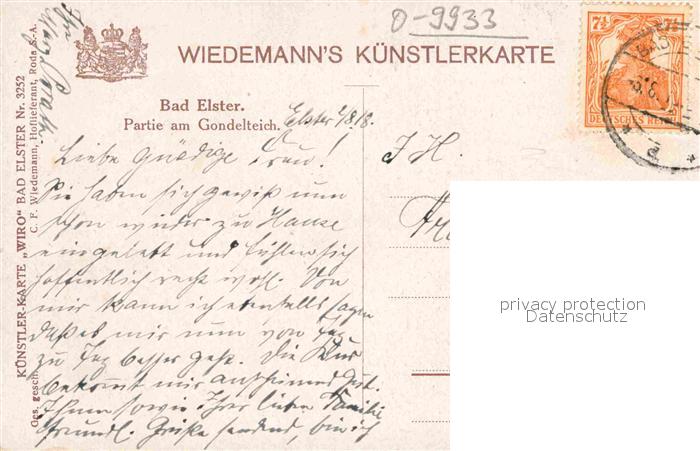 O-9933
WIEDEMANN'S KÜNSTLERKARTE
Bad Elster.
Partie am Gondelteich.
Elster 2/8 18.
Liebe Gnädige Frau!
Sie haben sich gewiß nun
schon wieder zu Hause
eingelebt und fühlen sich
hoffentlich recht wohl. Von
mir kann ich ebenfalls sagen
daß es mir nun von Tag
zu Tag besser geht. Die Kur
bekommt mir anscheinend gut.
Ihnen sowie Ihrer lieben Familie
freundl. Grüße sendend, bin ich
Ihr
KÜNSTLER-KARTE „WIRO“ BAD ELSTER Nr. 3252
Ges. gesch. C. F. Wiedemann, Hoflieferant, Roda S.-A.
7½ 7½
DEUTSCHES REICH
BAD
J. H.
privacy protection
Datenschutz